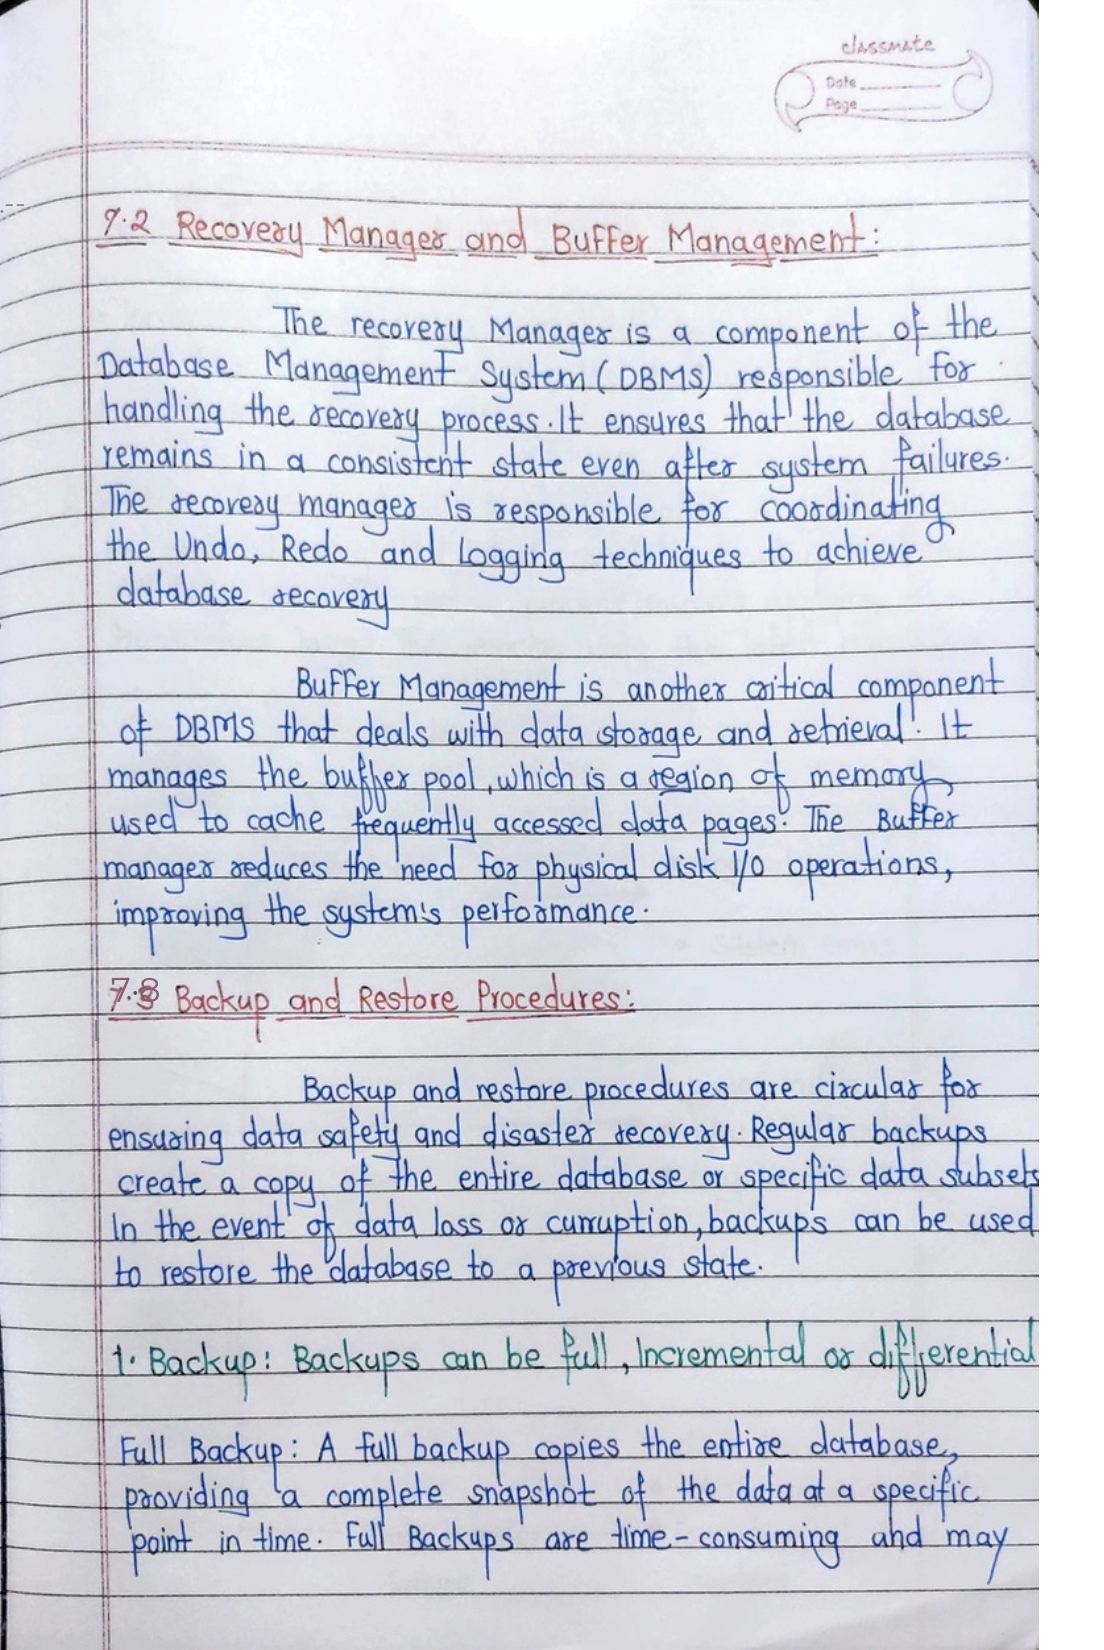 classmate
Date
Page
7.2 Recovery Manager and Buffer Management:
The recovery Manager is a component of the
Database Management System (DBMS) responsible for
handling the recovery process. It ensures that the database
remains in a consistent state even after system failures.
The recovery manager is responsible for coordinating
the Undo, Redo and Logging techniques to achieve
database recovery
Buffer Management is another critical component
of DBMS that deals with data storage and retrieval. It
manages the buffer pool, which is a region of memory
used to cache frequently accessed data pages. The Buffer
manager reduces the need for physical disk I/O operations,
improving the system's performance.
7.3 Backup and Restore Procedures:
Backup and restore procedures are circular for
ensuring data safety and disaster recovery. Regular backups
create a copy of the entire database or specific data subsets
In the event of data loss or curruption, backups can be used
to restore the database to a previous state.
1. Backup: Backups can be full, Incremental or differential
Full Backup: A full backup copies the entire database,
providing a complete snapshot of the data at a specific
point in time. Full Backups are time-consuming and may